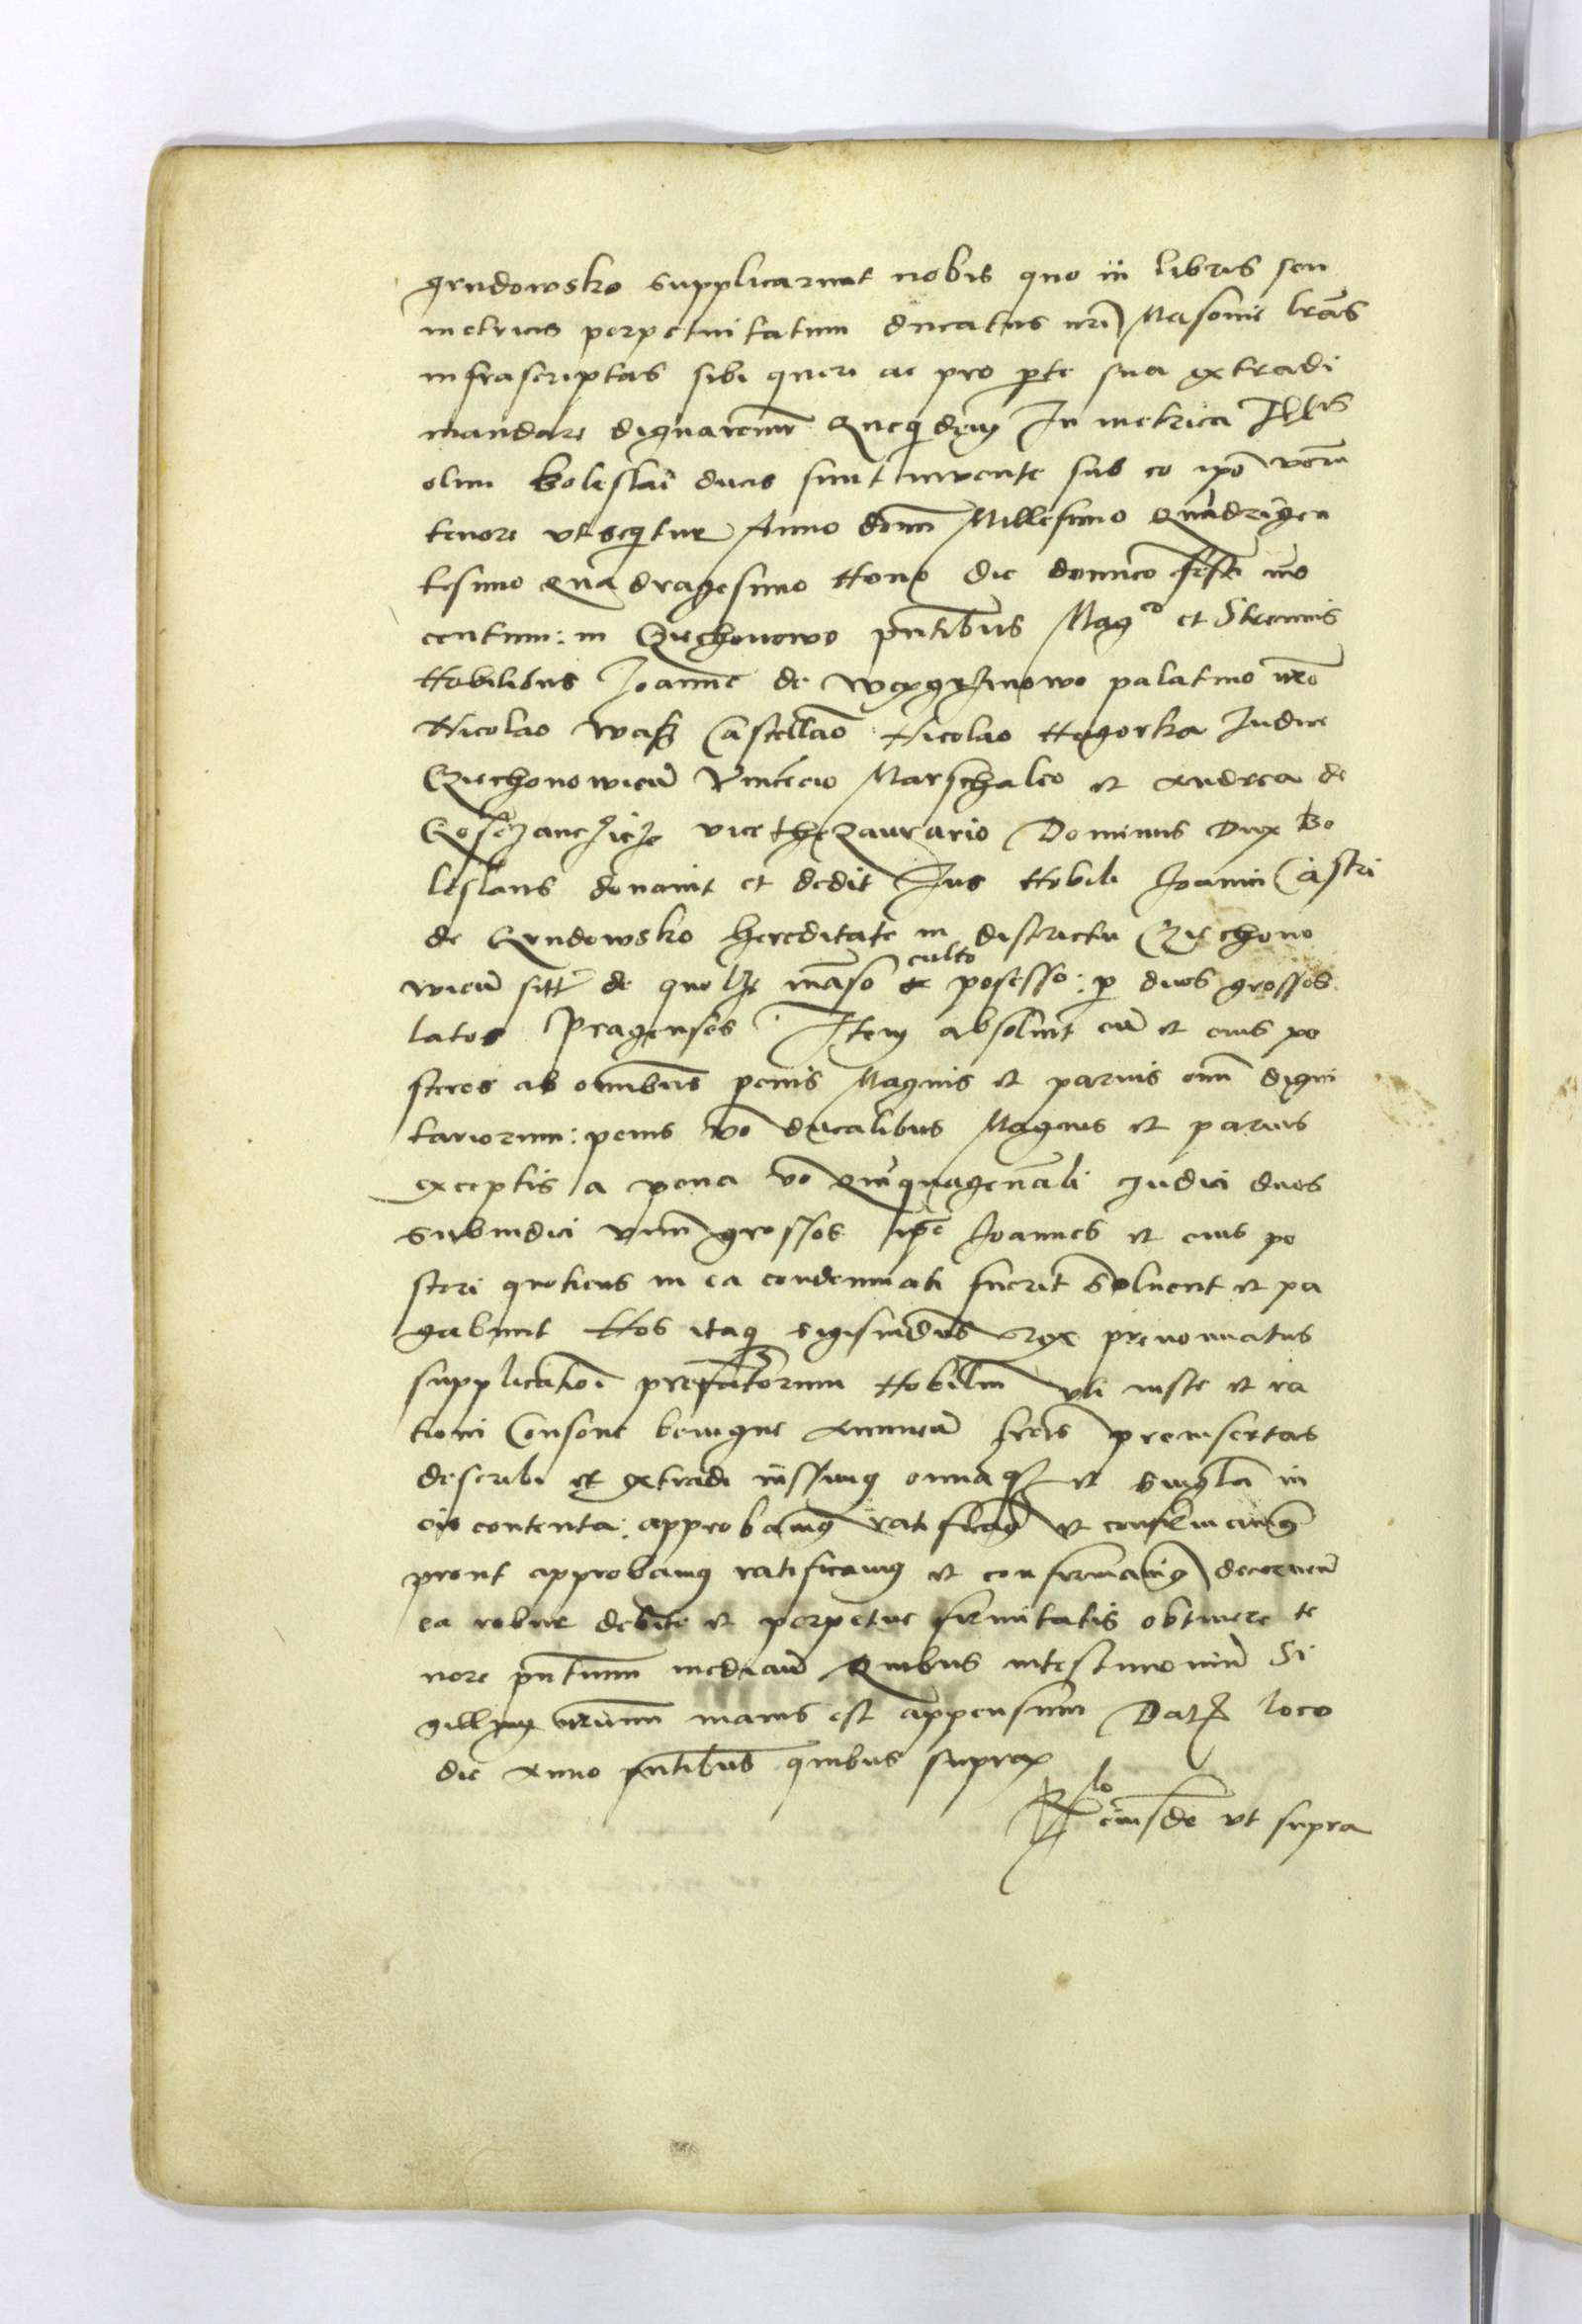 grudowsko supplicarunt nobis quo in libris seu
metricis perpetuitatum ducatus nri Masovie lras
infrascriptas sibi queri ac pro pte sua extradi
mandare dignaremur Queqdem In metrica Illris
olim Boleslai ducis sunt invente sub eo ipo veru
tenore ut seqitur Anno domi Millesimo Quadringen
tesimo Quadragesimo Nono die dominico festi inno
centum: in Cziechonowo pntibus Magco et Strenuis
Nobilibus Joanne de palatino nro
Nicolao Castellao Nicolao Nagorka Judice
Cziechonowien Vincencio Marschalco et Andrea de
vicethezaurario Dominus Dux Bo
leslaus donavit et dedit Jus Nobili Joanni Castri
de Grudowsko hereditate in districtu Cziechono
wien sitt de quolz manso culto & posesso: p duos grossos
latos Pragenses Item absolvit eu et eius po
steros ab omnibus penis Magnis et parvis omn digni
tariorum: penis vo ducalibus Magnis et parvis
exceptis a pena vo quinquagenali Judici duos
subiudici unum grossos ipse Joannes et eius po
steri quotiens in ea condemnati fuerit solvent et pa
gabunt Nos itaq Sigismudus rex prenominatus
supplicationi prefatorum Nobilium uti iuste et ra
tioni Consone benigne Annuen lras preinsertas
describi et extradi iussimus omnia qz et singula in
eis contenta: approbamus ratificadu et confirmamus
prout approbamus ratificamus et confirmamus decernen
ea robur debite et perpetue firmitatis obtinere te
nore pntium median Quibus intestimonium Si
gillum nrum maius est appensum Dat loco
die Anno pntibus quibus supra
Rlo eiusde ut supra